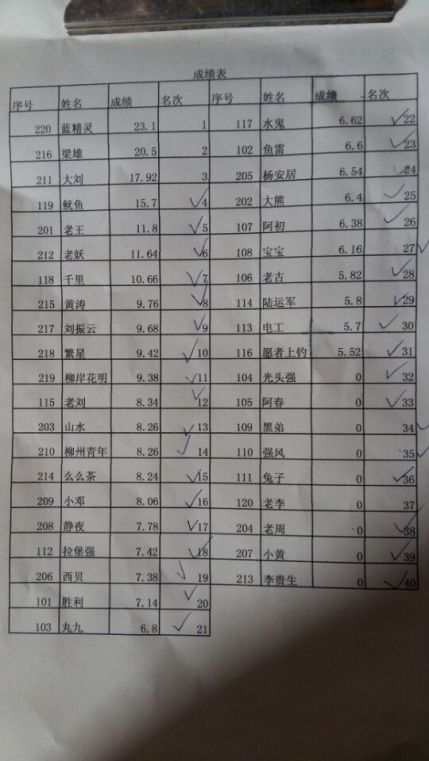 成绩表
序号 姓名 成绩 名次 序号 姓名 成绩 名次
220 蓝精灵 23.1 1 117 水鬼 6.62 22
216 梁雄 20.5 2 102 鱼雷 6.6 23
211 大刘 17.92 3 205 杨安居 6.54 24
119 鱿鱼 15.7 4 202 大熊 6.4 25
201 老王 11.8 5 107 阿初 6.38 26
212 老妖 11.64 6 108 宝宝 6.16 27
118 千里 10.66 7 106 老古 5.82 28
215 黄涛 9.76 8 114 陆运军 5.8 29
217 刘振云 9.68 9 113 电工 5.7 30
218 繁星 9.42 10 116 愿者上钓 5.52 31
219 柳岸花明 9.38 11 104 光头强 0 32
115 老刘 8.34 12 105 阿春 0 33
203 山水 8.26 13 109 黑弟 0 34
210 柳州青年 8.26 14 110 强风 0 35
214 么么茶 8.24 15 111 兔子 0 36
209 小邓 8.06 16 120 老李 0 37
208 静夜 7.78 17 204 老周 0 38
112 拉堡强 7.42 18 207 小黄 0 39
206 西贝 7.38 19 213 李贵生 0 40
101 胜利 7.14 20
103 丸九 6.8 21